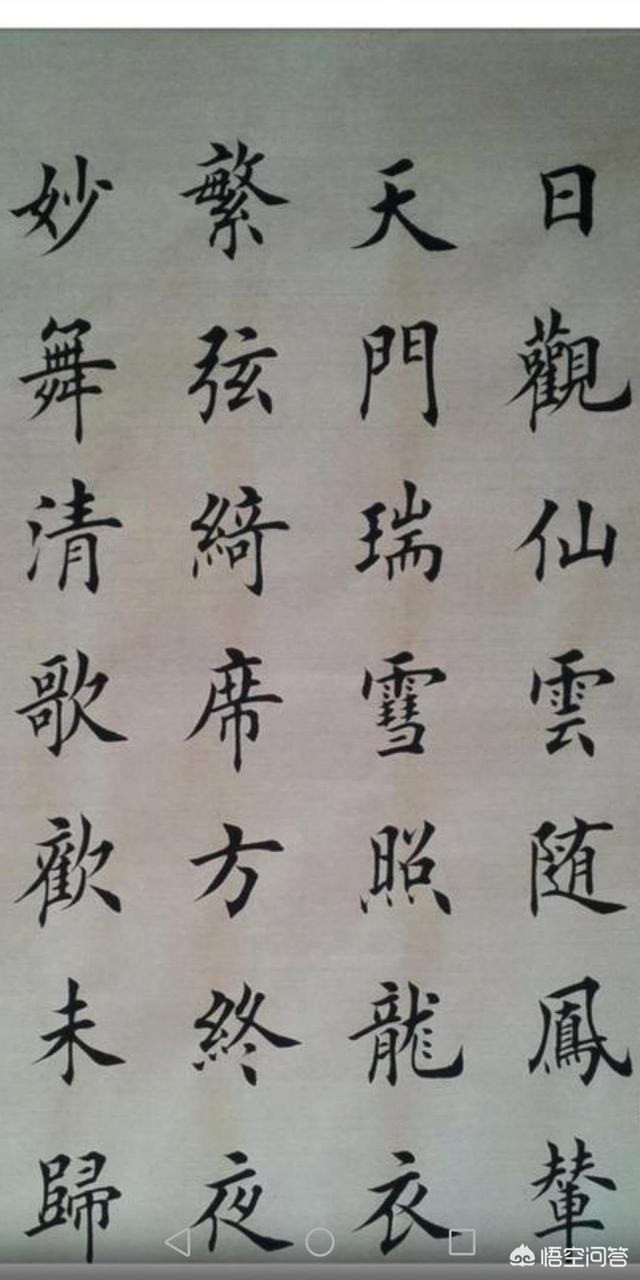 日觀仙雲随鳳輦
天門瑞雪照龍衣
繁弦綺席方終夜
妙舞清歌歡未歸
悟空问答